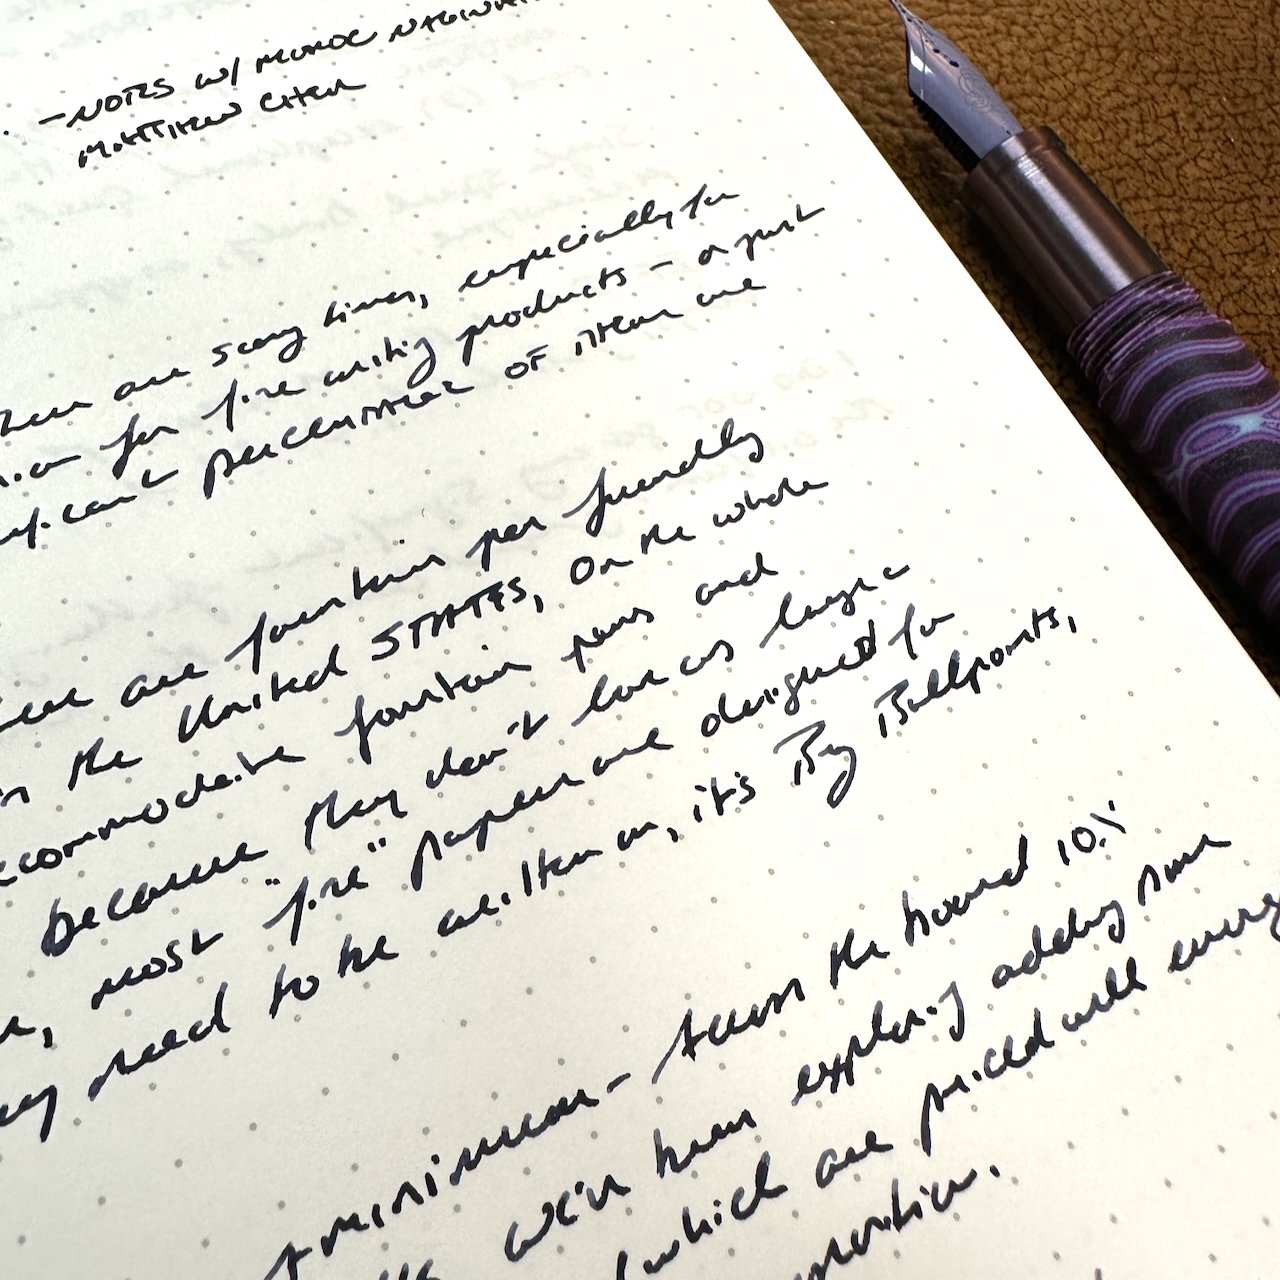 - NOTES W/ MONDE
MATTHEW CHEN
are scary times, especially for
for fine writing products - a just
percentage OF them are
are fountain pen friendly
in the United STATES, On the whole
accommodative fountain pens and
because they don't have as large a
most "fine" papers are designed for
need to be written on, it's By Ballpoints,
minimum - Across the board 10%
we've been exploring adding some
(which are priced well every